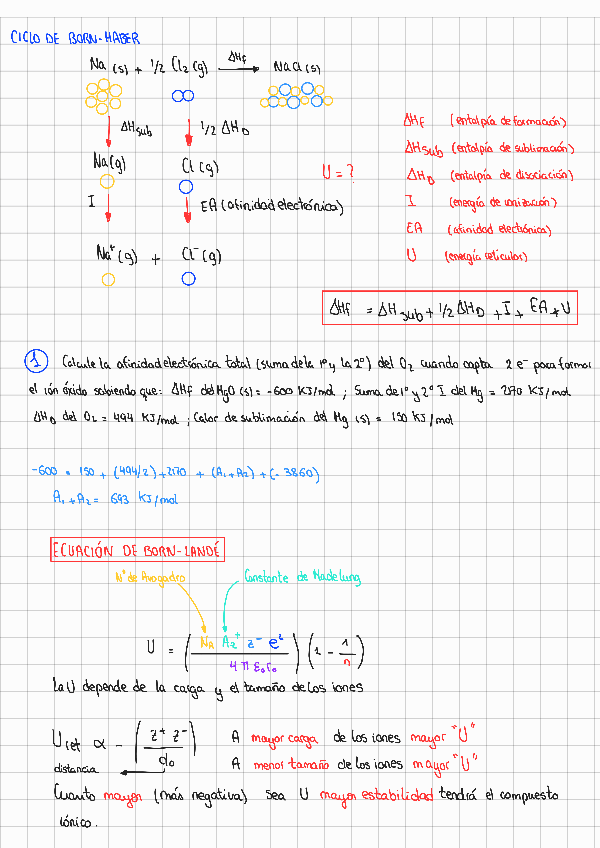 CICLO DE BORN-HABER
Na (s) + 1/2 Cl2 (g) ΔHf → NaCl (s)
ΔHsub 1/2 ΔHD
Na(g) Cl (g)
U = ?
I EA (afinidad electrónica)
Na+ (g) + Cl- (g)
ΔHf (entalpía de formación)
ΔHsub (entalpía de sublimación)
ΔHD (entalpía de disociación)
I (energía de ionización)
EA (afinidad electrónica)
U (energía reticular)
ΔHf = ΔHsub + 1/2 ΔHD + I + EA + U
1 Calcule la afinidad electrónica total (suma de la 1º y la 2º) del O2 cuando capta 2 e- para formar
el ión óxido sabiendo que: ΔHf del MgO (s) = -600 KJ/mol ; Suma de 1º y 2º I del Mg = 2170 KJ/mol
ΔHD del O2 = 494 KJ/mol ; Calor de sublimación del Mg (s) = 150 KJ/mol
-600 = 150 + (494/2) + 2170 + (A1 + A2) + (-3860)
A1 + A2 = 693 KJ/mol
ECUACIÓN DE BORN-LANDÉ
Nº de Avogadro Constante de Madelung
U = (NA A z+ z- e2 / 4 π ε0 r0) (1 - 1/n)
La U depende de la carga y el tamaño de los iones
Uret α - (z+ z- / d0) A mayor carga de los iones mayor "U"
distancia A menor tamaño de los iones mayor "U"
Cuanto mayor (más negativa) sea U mayor estabilidad tendrá el compuesto
iónico.